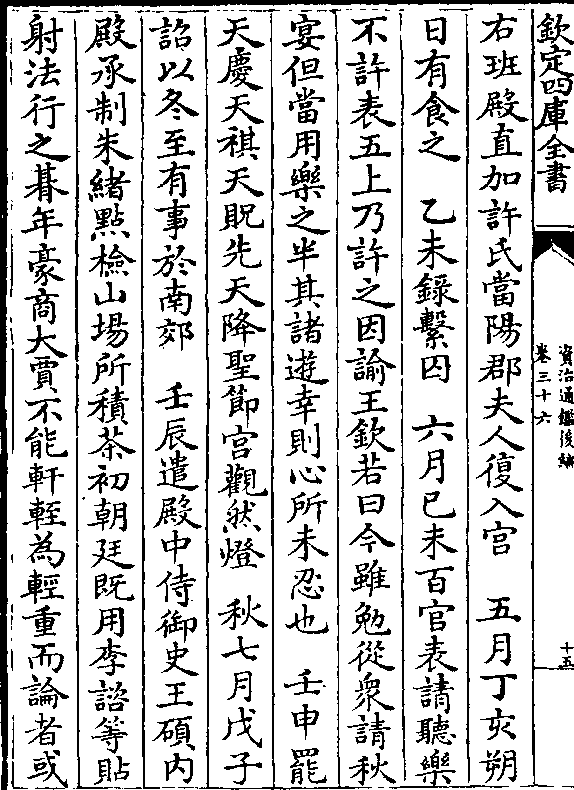 欽定四庫全書
資治通鑑後編
卷三十六
十五
右班殿直加許氏當陽郡夫人復入宮　五月丁亥朔
日有食之　乙未錄繫囚　六月己未百官表請聽樂
不許表五上乃許之因諭王欽若曰今雖勉從衆請秋
宴但當用樂之半其諸遊幸則心所未忍也　壬申罷
天慶天祺天貺先天降聖節宮觀然燈　秋七月戊子
詔以冬至有事於南郊　壬辰遣殿中侍御史王碩内
殿承制朱緒點檢山場所積茶初朝廷既用李諮等貼
射法行之朞年豪商大賈不能軒輊為輕重而論者或